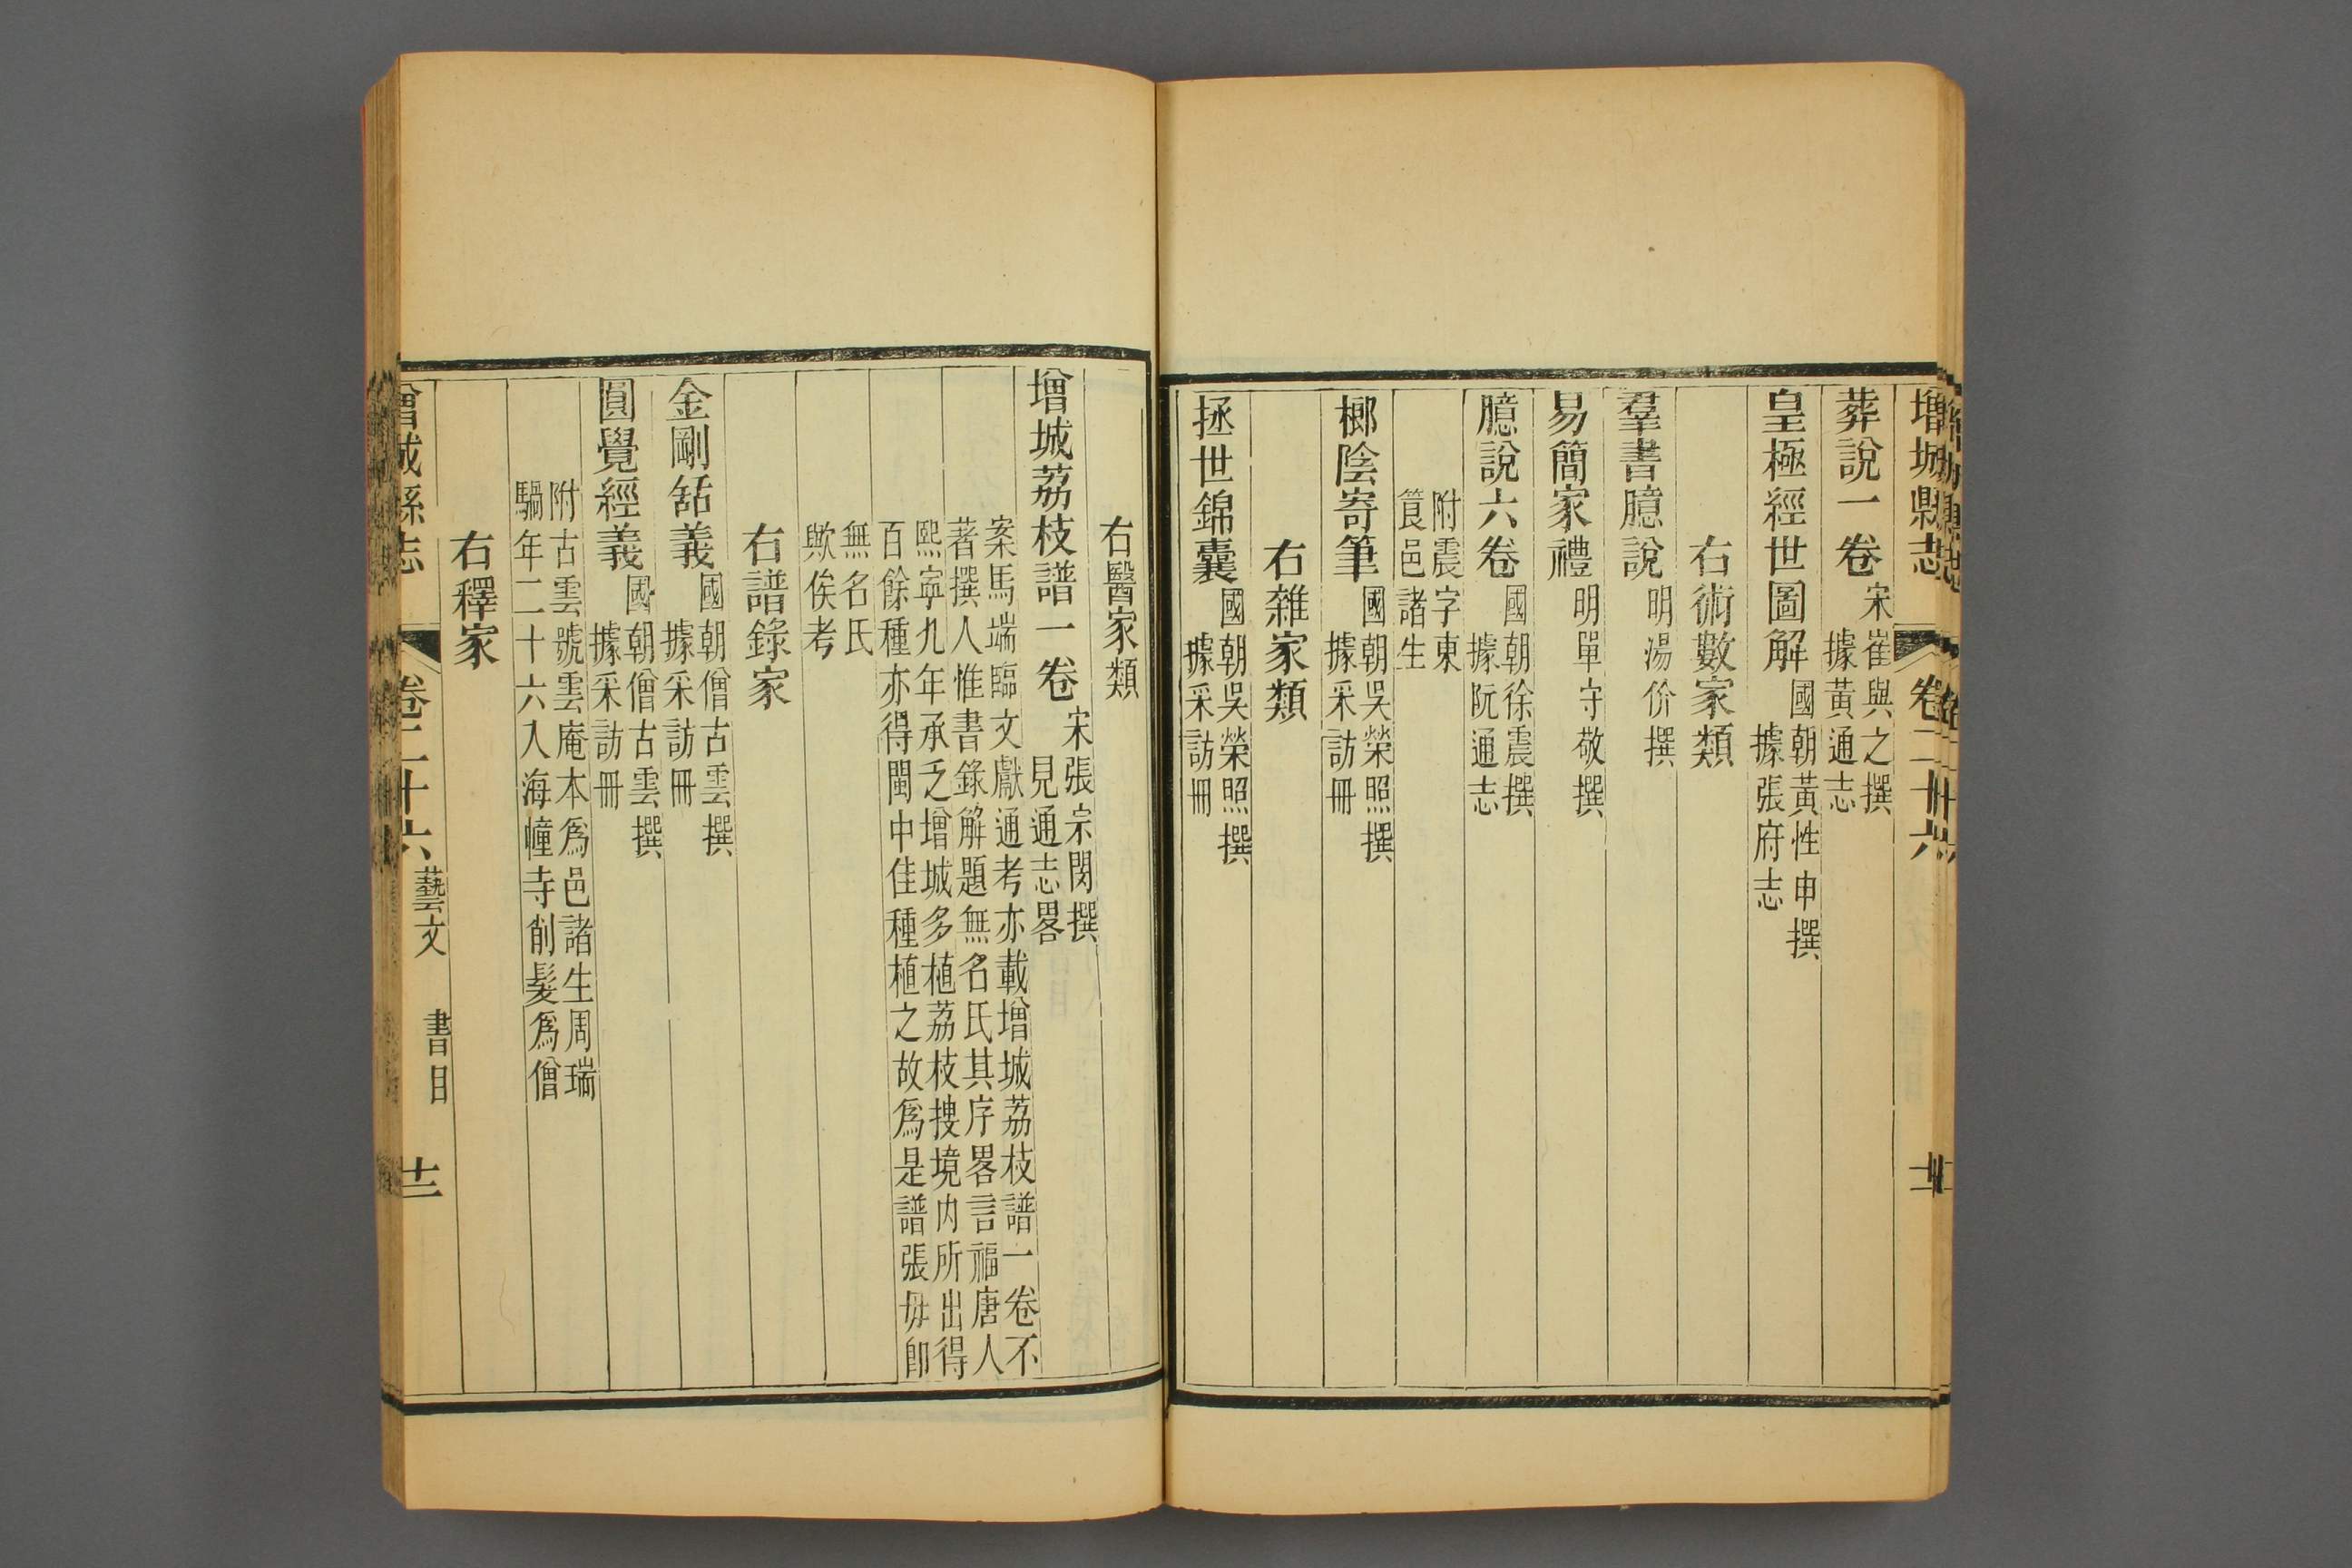 增城縣志 卷二十六
葬說一卷 宋崔與之撰 據黃通志
皇極經世圖解 國朝黃性申撰 據張府志
右術數家類
羣書臆說 明湯价撰
易簡家禮 明單守敬撰
臆說六卷 國朝徐震撰 據阮通志
附震字東
筤邑諸生
榔陰寄筆 國朝吳榮照撰 據采訪冊
右雜家類
拯世錦囊 國朝吳榮照撰 據采訪冊
右醫家類
增城荔枝譜一卷 宋張宗閔撰 見通志畧
案馬端臨文獻通考亦載增城荔枝譜一卷不
著撰人惟書錄解題無名氏其序畧言福唐人
熙寧九年承乏增城多植荔枝搜境内所出得
百餘種亦得閩中佳種植之故爲是譜張毋卽
無名氏
歟俟考
右譜錄家
金剛䑛義 國朝僧古雲撰 據采訪冊
圓覺經義 國朝僧古雲撰 據采訪冊
附古雲號雲庵本爲邑諸生周瑞
騧年二十六入海幢寺削髮爲僧
右釋家
增城縣志 卷二十六 藝文 書目 十二